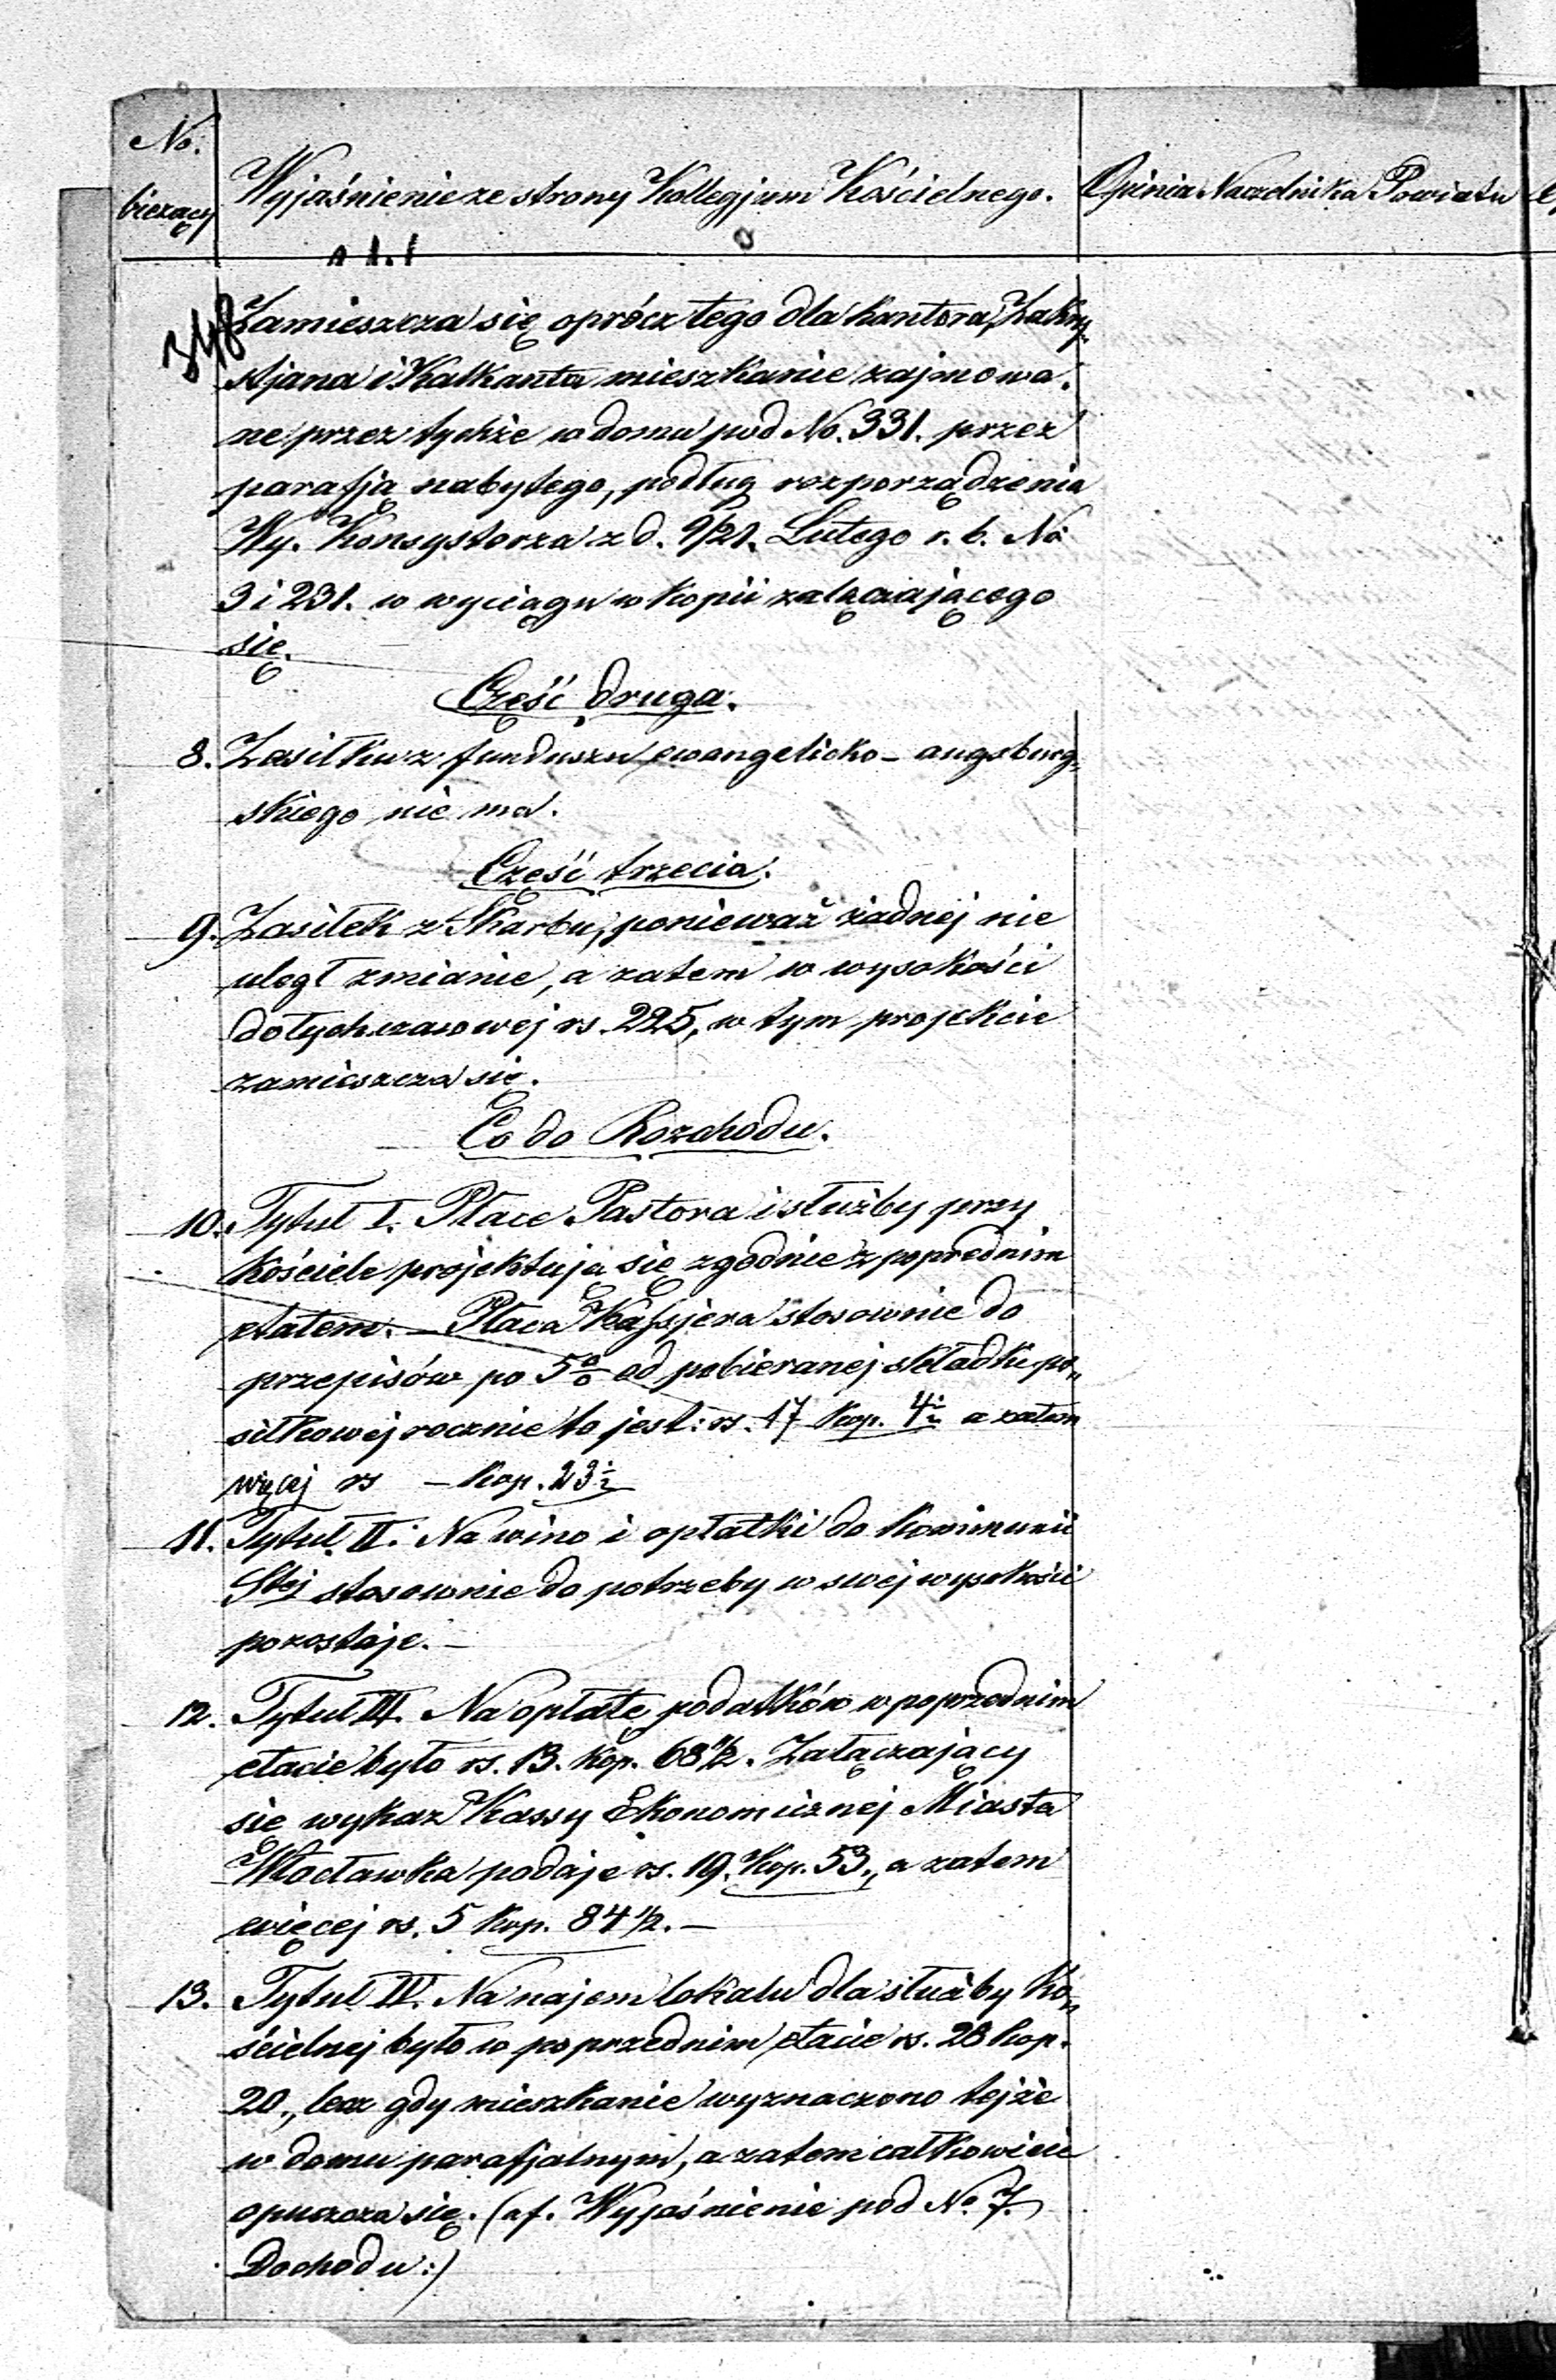 No.
bieżący
Wyjaśnienie ze strony Kollegjum Kościelnego.
Opinia Naczelnika Powiatu
348
Zamieszcza się oprócz tego dla kantora, Zakry-
stjana i Kalkanta mieszkanie zajmowa-
ne przez tychże w domu pod No. 331. przez
parafją nabytego, podług rozporządzenia
Wy. Konsystorza z d. 9/21. Lutego r. b. No
3 i 231. w wyciągu w kopii załączającego
się.
Część druga.
8. Zasiłku z funduszu ewangelicko - augsburg-
skiego nie ma.
Część trzecia.
9. Zasiłek z Skarbu, ponieważ żadnej nie
uległ zmianie, a zatem w wysokości
dotychczasowej rs. 225, w tym projekcie
zamieszcza się.
Co do Rozchodu.
10. Tytuł I. Płace Pastora i służby przy
Kościele projektują się zgodnie z poprednim
etatem. — Płaca Kassjera stosownie do
przepisów po 5 % od pobieranej składki po-
siłkowej rocznie to jest: rs. 17 kop. 4½ a zatem
więcej rs — kop. 23½
11. Tytuł II. Na wino i opłatki do Kommunii
Stej stosownie do potrzeby w swej wysokości
pozostaje. —
12. Tytuł III. Na opłatę podatków w poprzednim
etacie było rs. 13. kop. 68½. Załączający
się wykaz Kassy Ekonomicznej Miasta
Włocławka podaje rs. 19. Kop. 53., a zatem
więcej rs. 5 kop. 84½. —
13. Tytuł IV. Na najem lokalu dla służby Ko-
ścielnej było w poprzednim etacie rs. 28 kop.
20., lecz gdy mieszkanie wyznaczono tejże
w domu parafjalnym, a zatem całkowicie
opuszcza się. (cf. Wyjaśnienie pod No. 7.
Dochodu:)